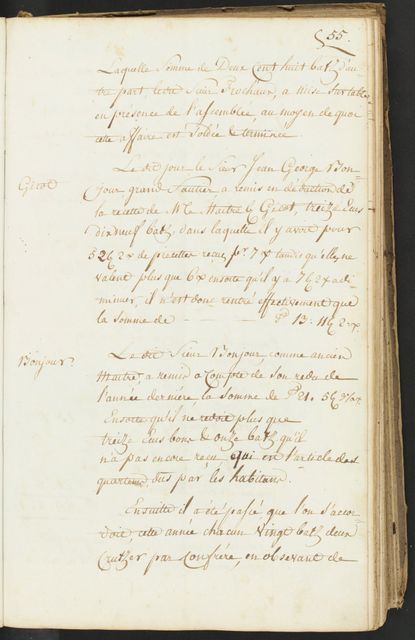 55.
Laquelle Somme de Deux Cent huit batz d'au-
tre part ledit Sieur Prochaux, a mise sur table
en présence de l'assemblée, au moyen de quoi
cette affaire est Soldée & terminée
Le dit jour le Sieur Jean George Bon-
Gicot
jour grand Sautier a remis en deduction de
la recette de Mr le Maitre Gicot, treize Ecus
dixneuf batz, dans laquelle il y avoit pour
de piecettes reçues pr 7 x tandis qu'elles ne
valent plus que 6 x ensorte qu'il y a à di-
minuer, il n'est donc rentré effectivement que
la somme de
Bonjour
Le dit Sieur Bonjour, comme ancien
Maitre, a remis à Compte de son redu de
l'année derniére, la Somme de
Ensorte qu'il ne redoit plus que
treize Ecus bons & onze batz qu'il
n'a pas encore reçu, qui est l'article des
dus par les habitans.
Ensuitte il a été passé que l'on s'accor-
doit cette année chacun Vingt batz deux
Crutzer par Confrére, en observant de